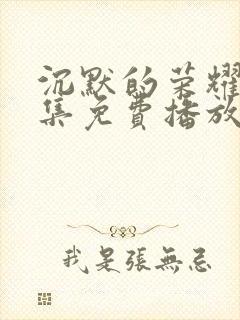 沉默的荣耀
集免費播放
我是張無忌